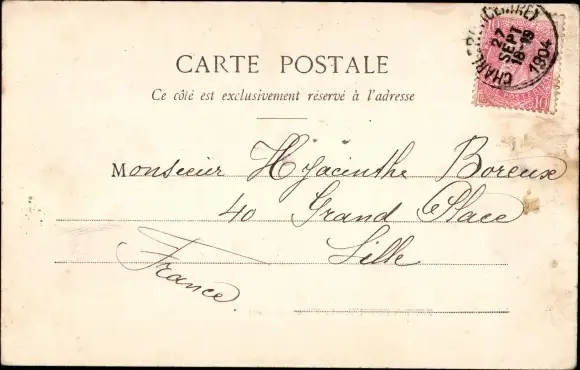 CHARLEROI (CENTRE)
27
SEPT
18-19
1904
10
CARTE POSTALE
Ce côté est exclusivement réservé à l'adresse
Monsieur Hyacinthe Boreux
40 Grand Place
Lille
France